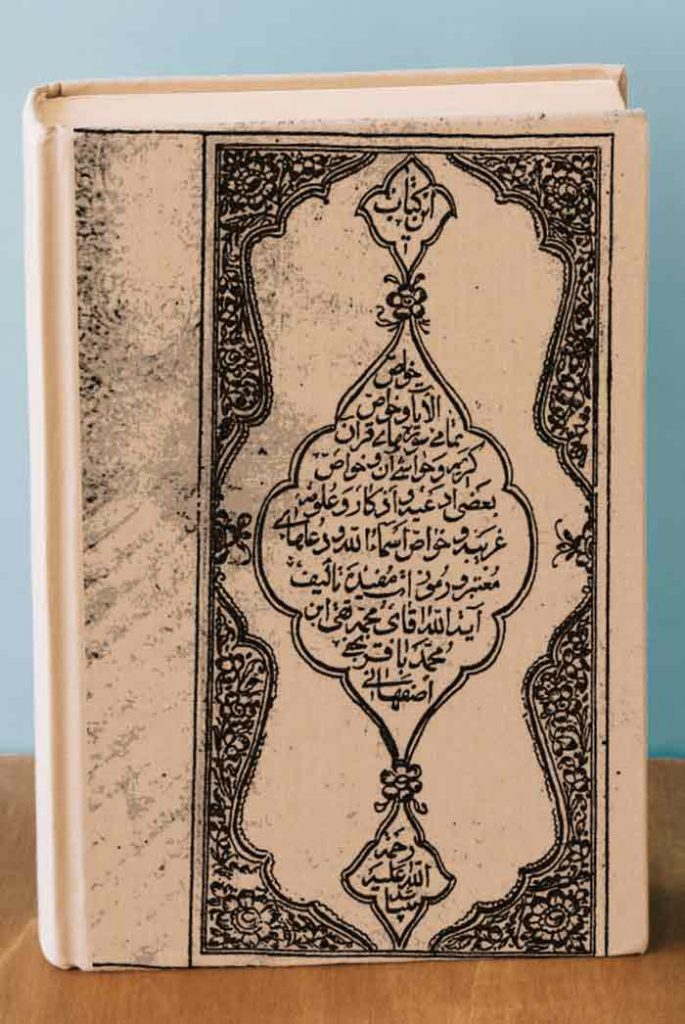 این کتاب
خواص
الآیات و خواص
تمامی سوره های قران
کریمه و خواتیم آن و خواص
بعضی ادعیه و اذکار و علوم
غریبه و خواص اسماء الله و دعاهای
معتبر و رموزات مفیده تالیف
آیة الله آقای محمد تقی ابن
محمد باقر نجفی
اصفهانی
رحمة
الله علیه